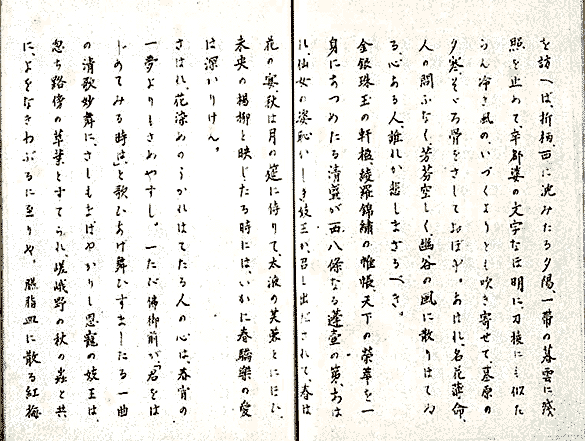 を訪へば、折柄、西に沈みたる夕陽、一帯の暮雲に残
照を止めて卒都婆の文字なほ明に刀梭にも似た
らん冷き風の、いづくよりとも吹き寄せて、墓原の
夕寒そゞろ骨をさしておぼゆ。あはれ、名花薄命、
人の問ふなく芳芬空しく幽谷の風に散りはてぬ
る、心ある人誰れか悲しまざるべき。
金銀珠玉の軒楹、綾羅錦繍の帷帳天下の栄華を一
身にあつめたる清盛が西八條なる蓬壺の裏、あは
れ、仙女の姿恥かしき妓王が、召し出だされて、春は
花の宴秋は月の筵に侍りて、太液の芙蓉とにほひ、
未央の楊柳と映じたる時には、いかに春驕楽の愛
は深かりけん。
さはれ、花染めのうかれはてたる人の心は、春宵の
一夢よりもさめやすし。一たび佛御前が、「君をは
じめてみる時は」と歌ひあげ舞ひすましたる一曲
の清歌妙舞に、さしもまばゆかりし恩寵の妓王は
忽ち路傍の草葉とすてられ、嵯峨野の秋の蟲と共
に、よをなきわぶるに至りや。臙脂血に散る紅梅